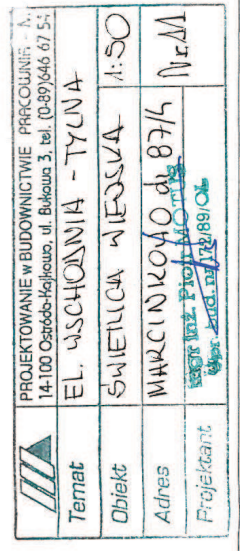 PROJEKTOWANIE W BUDOWNICTWIE PRACOWNIA - A.
14-100 Ostróda-Kajkowo, ul. Bukowa 3, tel. (0-89)646 67 54
Temat EL. WSCHODNIA - TYLNA
Obiekt ŚWIETLICA WIEJSKA 1:50
Adres MARCINKOWO dz 87/4 Nr.11
Projektant mgr inż. Piotr MOTUS
Upr. bud. nr 172/89/OL